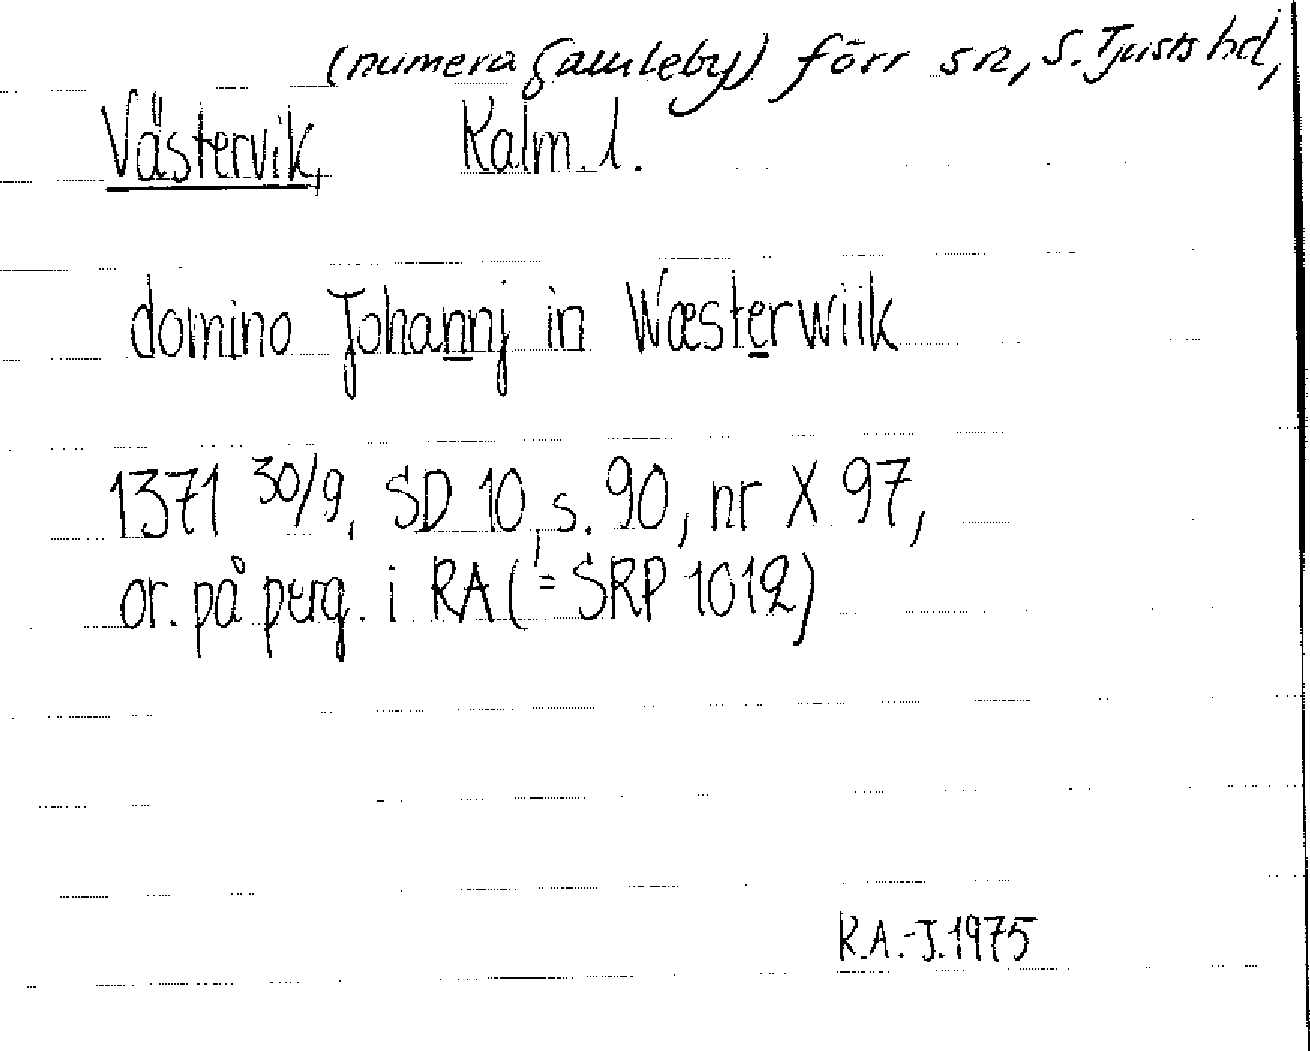 (numera Gamleby) förr sn, S. Tjusts hd,
Västervik, Kalm. l.
domino Johannj in Wæsterwiik
1371 30/9, SD 10, s. 90, nr X 97,
or. på perg. i RA (= SRP 1012)
K.A.-J. 1975